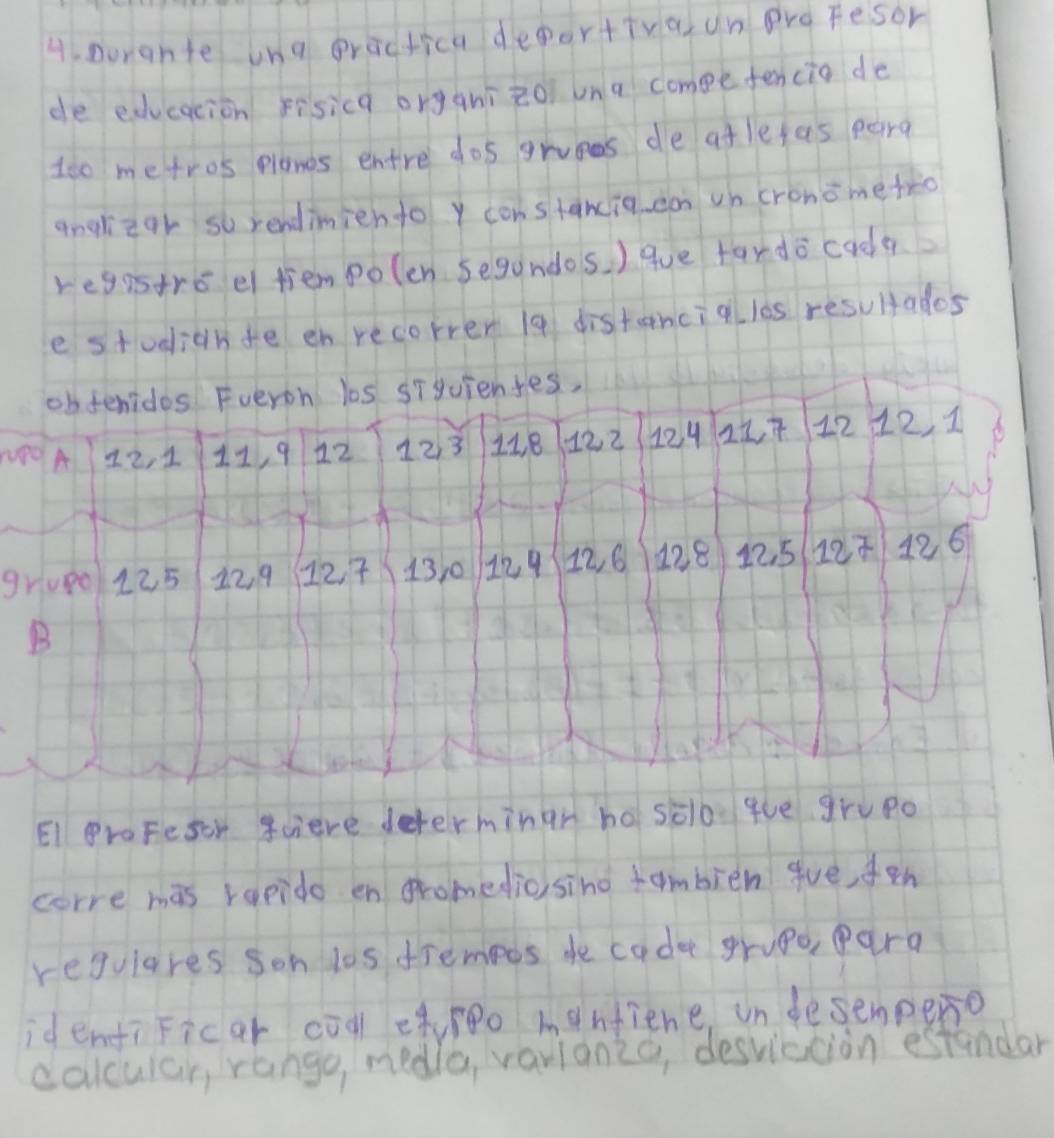 4. Durante una práctica deportiva, un profesor
de educación física organizo una competencia de
100 metros planos entre dos grupos de atletas para
analizar su rendimiento y constancia con un cronómetro
registró el tiempo (en segundos.) que tardó cada
estudiante en recorrer la distancia. los resultados
obtenidos Fueron los siguientes.
A 12,1 11,9 12 12,3 11,8 12,2 12,4 11,7 12 12,1
grupo B 12,5 12,9 12,7 13,0 12,4 12,6 12,8 12,5 12,7 12,6
El profesor quiere determinar no sólo que grupo
corre más rapido en promedio, sino tambien que, tan
regulares son los tiempos de cada grupo, para
identificar cúal mantiene un desempeño
calcular, rango, media, varianza, desviación estandar